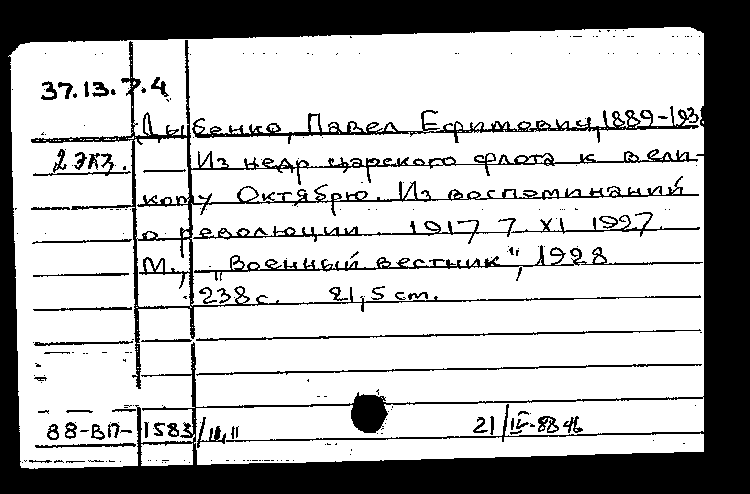 37.13.7.4
Дыбенко, Павел Ефимович, 1889-1938
2 экз. Из недр царского флота к вели-
кому Октябрю. Из воспоминаний
о революции 1917 7 XI 1927.
М., "Военный вестник", 1928
238 с. 21,5 cm.
88-ВП-1583/
21/IV-88